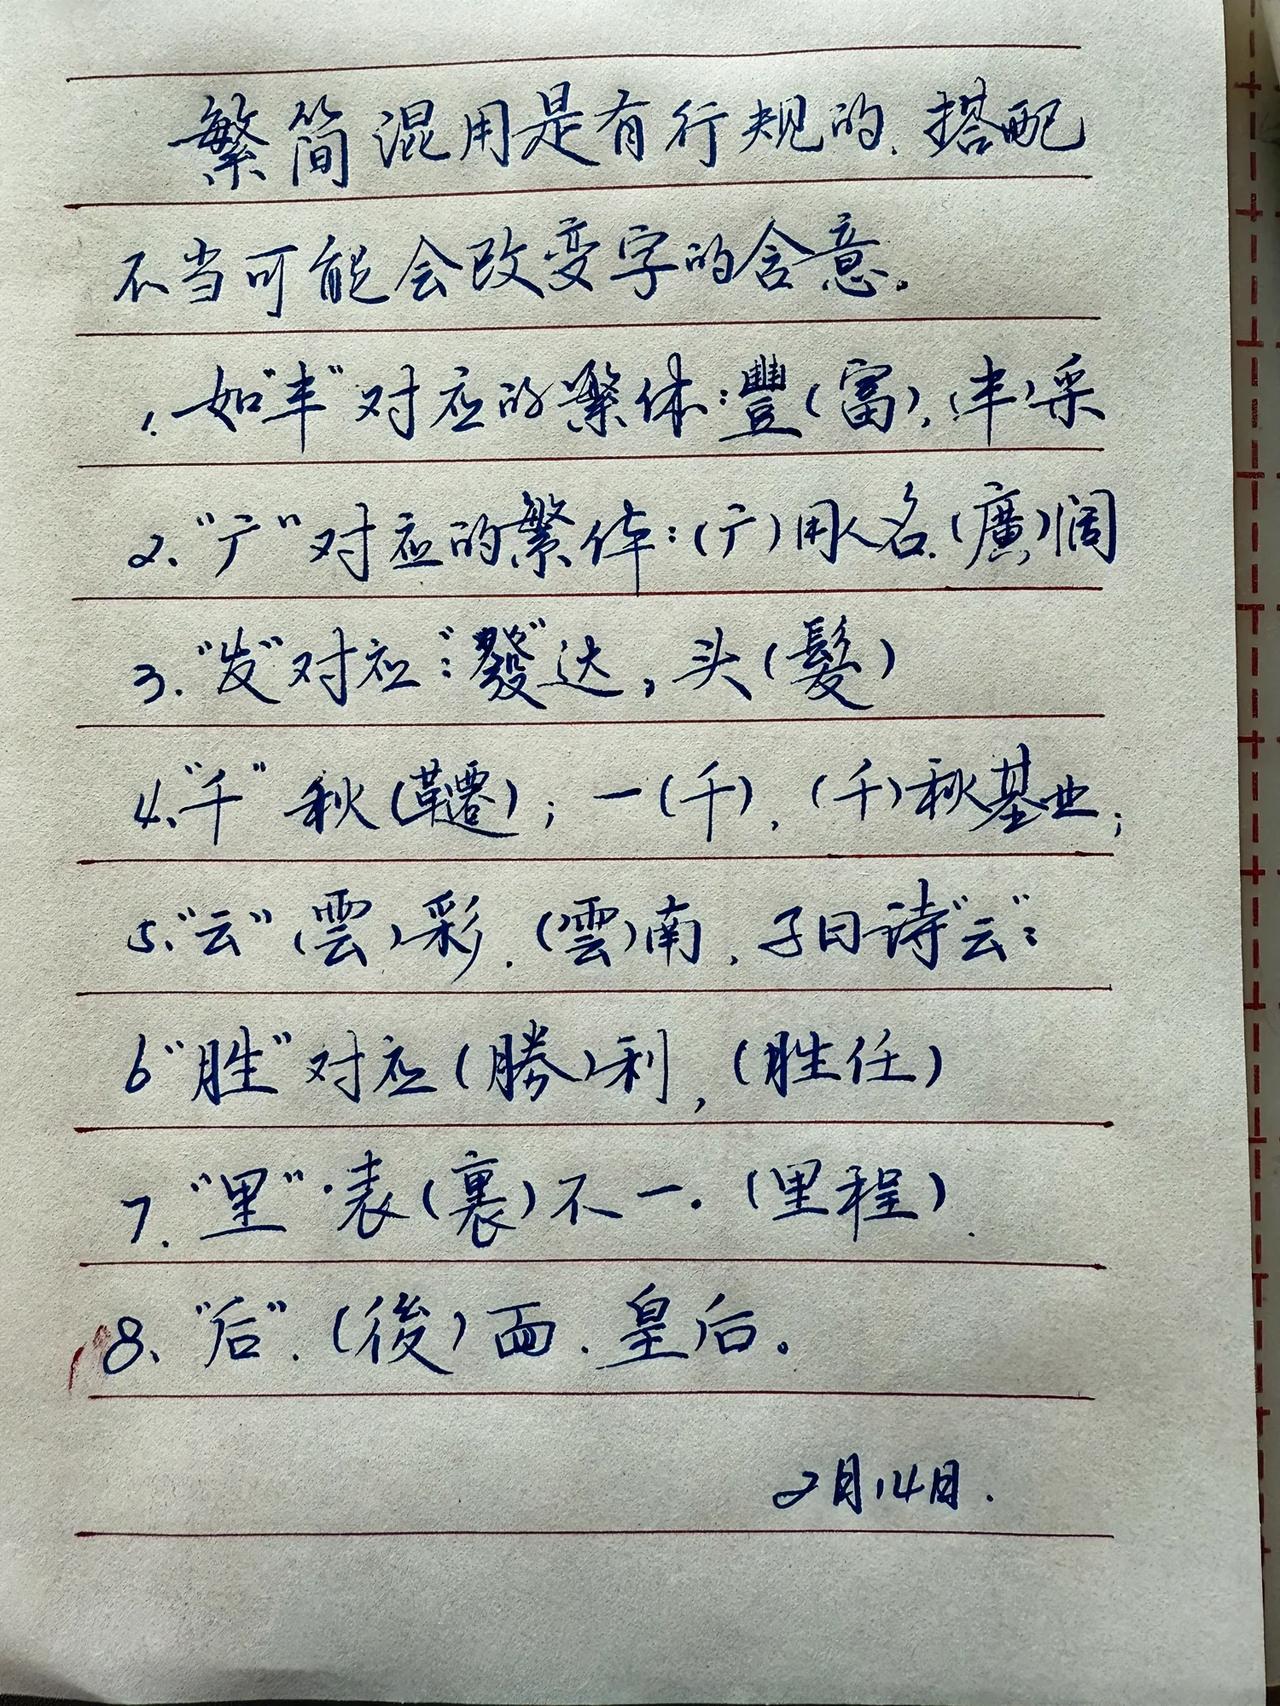 繁简混用是有行规的、搭配
不当可能会改变字的含意。
1、如"丰"对应的繁体:豐(富),(丰)采
2、"广"对应的繁体:(广)用人名、(廣)阔
3、"发"对应:"發"达,头(髮)
4、"千"秋(韆);一(千),(千)秋基业;
5、"云"(雲)彩、(雲)南,子曰诗"云":
6"胜"对应(勝)利,(胜任)
7、"里"·表(裏)不一。(里程)、
8、"后"、(後)面、皇后。
2月14日.